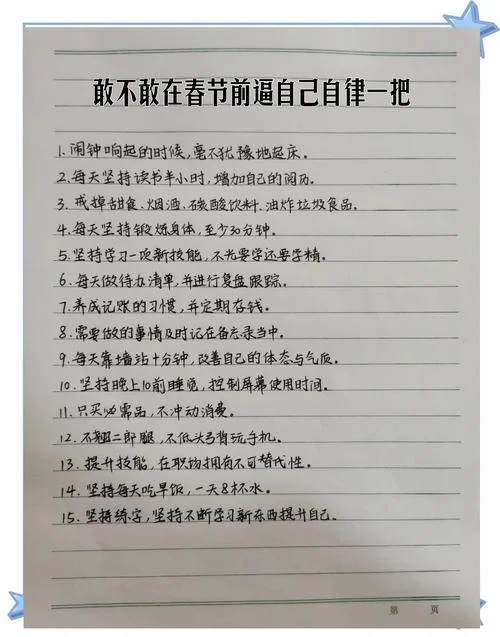 敢不敢在春节前逼自己自律一把
1.闹钟响起的时候,毫不犹豫地起床。
2.每天坚持读书半小时,增加自己的阅历。
3.戒掉甜食、烟酒、碳酸饮料、油炸垃圾食品。
4.每天坚持锻炼身体,至少30分钟。
5.坚持学习一项新技能,不光要学还要学精。
6.每天做待办清单,并进行复盘跟踪。
7.养成记账的习惯,并定期存钱。
8.需要做的事情及时记在备忘录当中。
9.每天靠墙站十分钟,改善自己的体态与气质。
10.坚持晚上10前睡觉,控制屏幕使用时间。
11.只买必需品,不冲动消费。
12.不翘二郎腿,不低头弓背玩手机。
13.提升技能,在职场拥有不可替代性。
14.坚持每天吃早饭,一天8杯水。
15.坚持练字,坚持不断学习新东西提升自己。
第 页